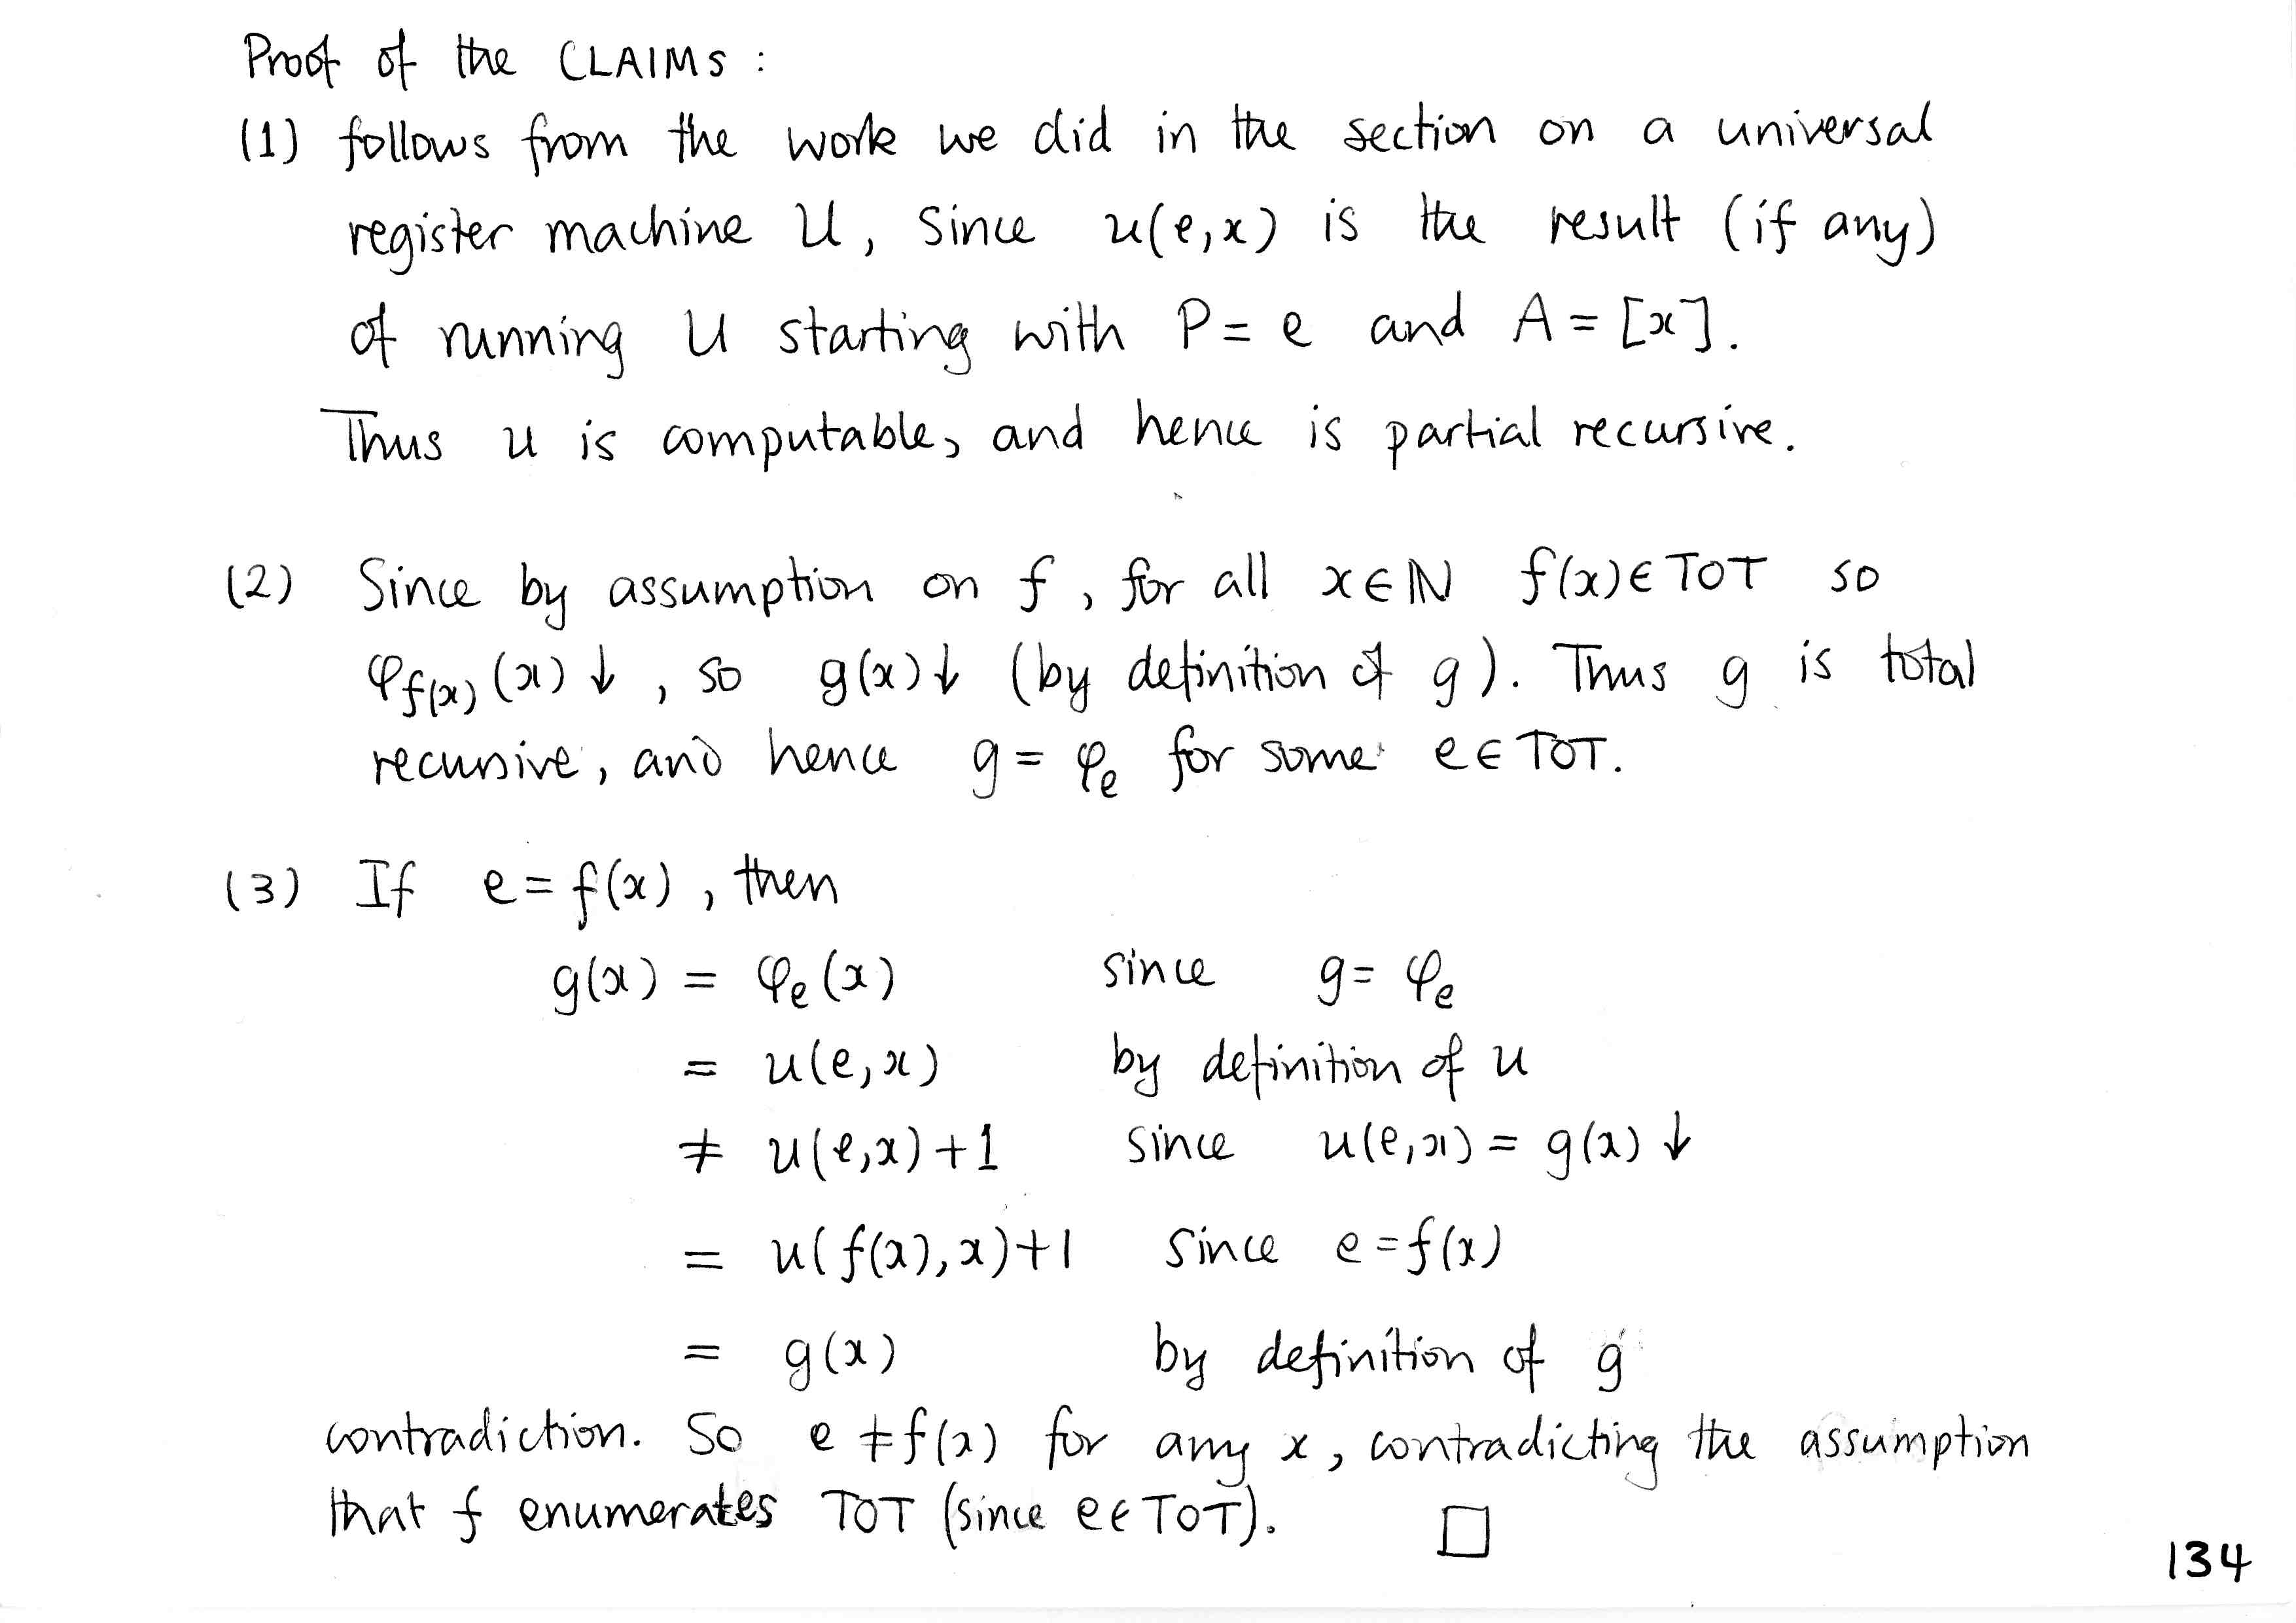 Proof of the CLAIMS :
(1) follows from the work we did in the section on a universal
register machine U, since u(e,x) is the result (if any)
of running U starting with P = e and A = [x].
Thus u is computable, and hence is partial recursive.
(2) Since by assumption on f, for all x∈ℕ f(x)∈TOT so
φ_f(x)(x)↓, so g(x)↓ (by definition of g). Thus g is total
recursive, and hence g = φ_e for some e∈TOT.
(3) If e = f(x), then
g(x) = φ_e(x) since g = φ_e
= u(e,x) by definition of u
≠ u(e,x)+1 since u(e,x) = g(x)↓
= u(f(x),x)+1 since e = f(x)
= g(x) by definition of g
contradiction. So e ≠ f(x) for any x, contradicting the assumption
that f enumerates TOT (since e∈TOT). □
134